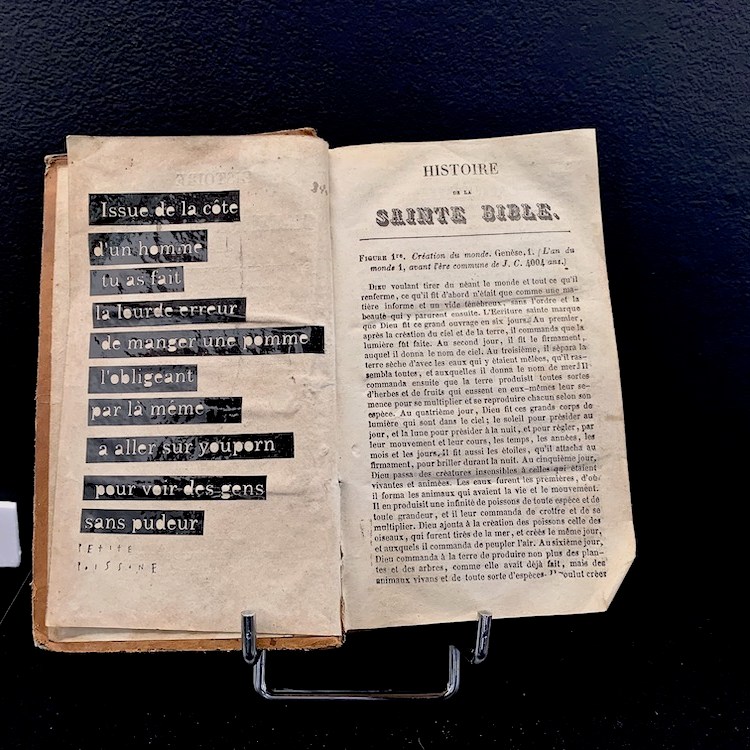 Issue de la côte
d'un homme
tu as fait
la lourde erreur
de manger une pomme
l'obligeant
par là même
a aller sur youporn
pour voir des gens
sans pudeur
PETITE
POISSONE
HISTOIRE
DE LA
SAINTE BIBLE.
FIGURE 1re. Création du monde. Genèse, 1. (L'an du
monde 1, avant l'ère commune de J. C. 4004 ans.)
DIEU voulant tirer du néant le monde et tout ce qu'il
renferme, ce qu'il fit d'abord n'était que comme une ma-
tière informe et un vide ténébreux, sans l'ordre et la
beauté qui y parurent ensuite. L'Ecriture sainte marque
que Dieu fit ce grand ouvrage en six jours. Au premier,
après la création du ciel et de la terre, il commanda que la
lumière fût faite. Au second jour, il fit le firmament,
auquel il donna le nom de ciel. Au troisième, il sépara la
terre sèche d'avec les eaux qui y étaient mêlées, qu'il ras-
sembla toutes, et auxquelles il donna le nom de mer. Il
commanda ensuite que la terre produisît toutes sortes
d'herbes et de fruits qui eussent en eux-mêmes leur se-
mence pour se multiplier et se reproduire chacun selon son
espèce. Au quatrième jour, Dieu fit ces grands corps de
lumière qui sont dans le ciel; le soleil pour présider au
jour, et la lune pour présider à la nuit, et pour régler, par
leur mouvement et leur cours, les temps, les années, les
mois et les jours. Il fit aussi les étoiles, qu'il attacha au
firmament, pour briller durant la nuit. Au cinquième jour,
Dieu passa des créatures insensibles à celles qui étaient
vivantes et animées. Les eaux furent les premières, d'où
il forma les animaux qui avaient la vie et le mouvement.
Il en produisit une infinité de poissons de toute espèce et de
toute grandeur, et il leur commanda de croître et de se
multiplier. Dieu ajouta à la création des poissons celle des
oiseaux, qui furent tirés de la mer, et créés le même jour,
et auxquels il commanda de peupler l'air. Au sixième jour,
Dieu commanda à la terre de produire non plus des plan-
tes et des arbres, comme elle avait déjà fait, mais des
animaux vivans et de toute sorte d'espèces. Il voulut créer